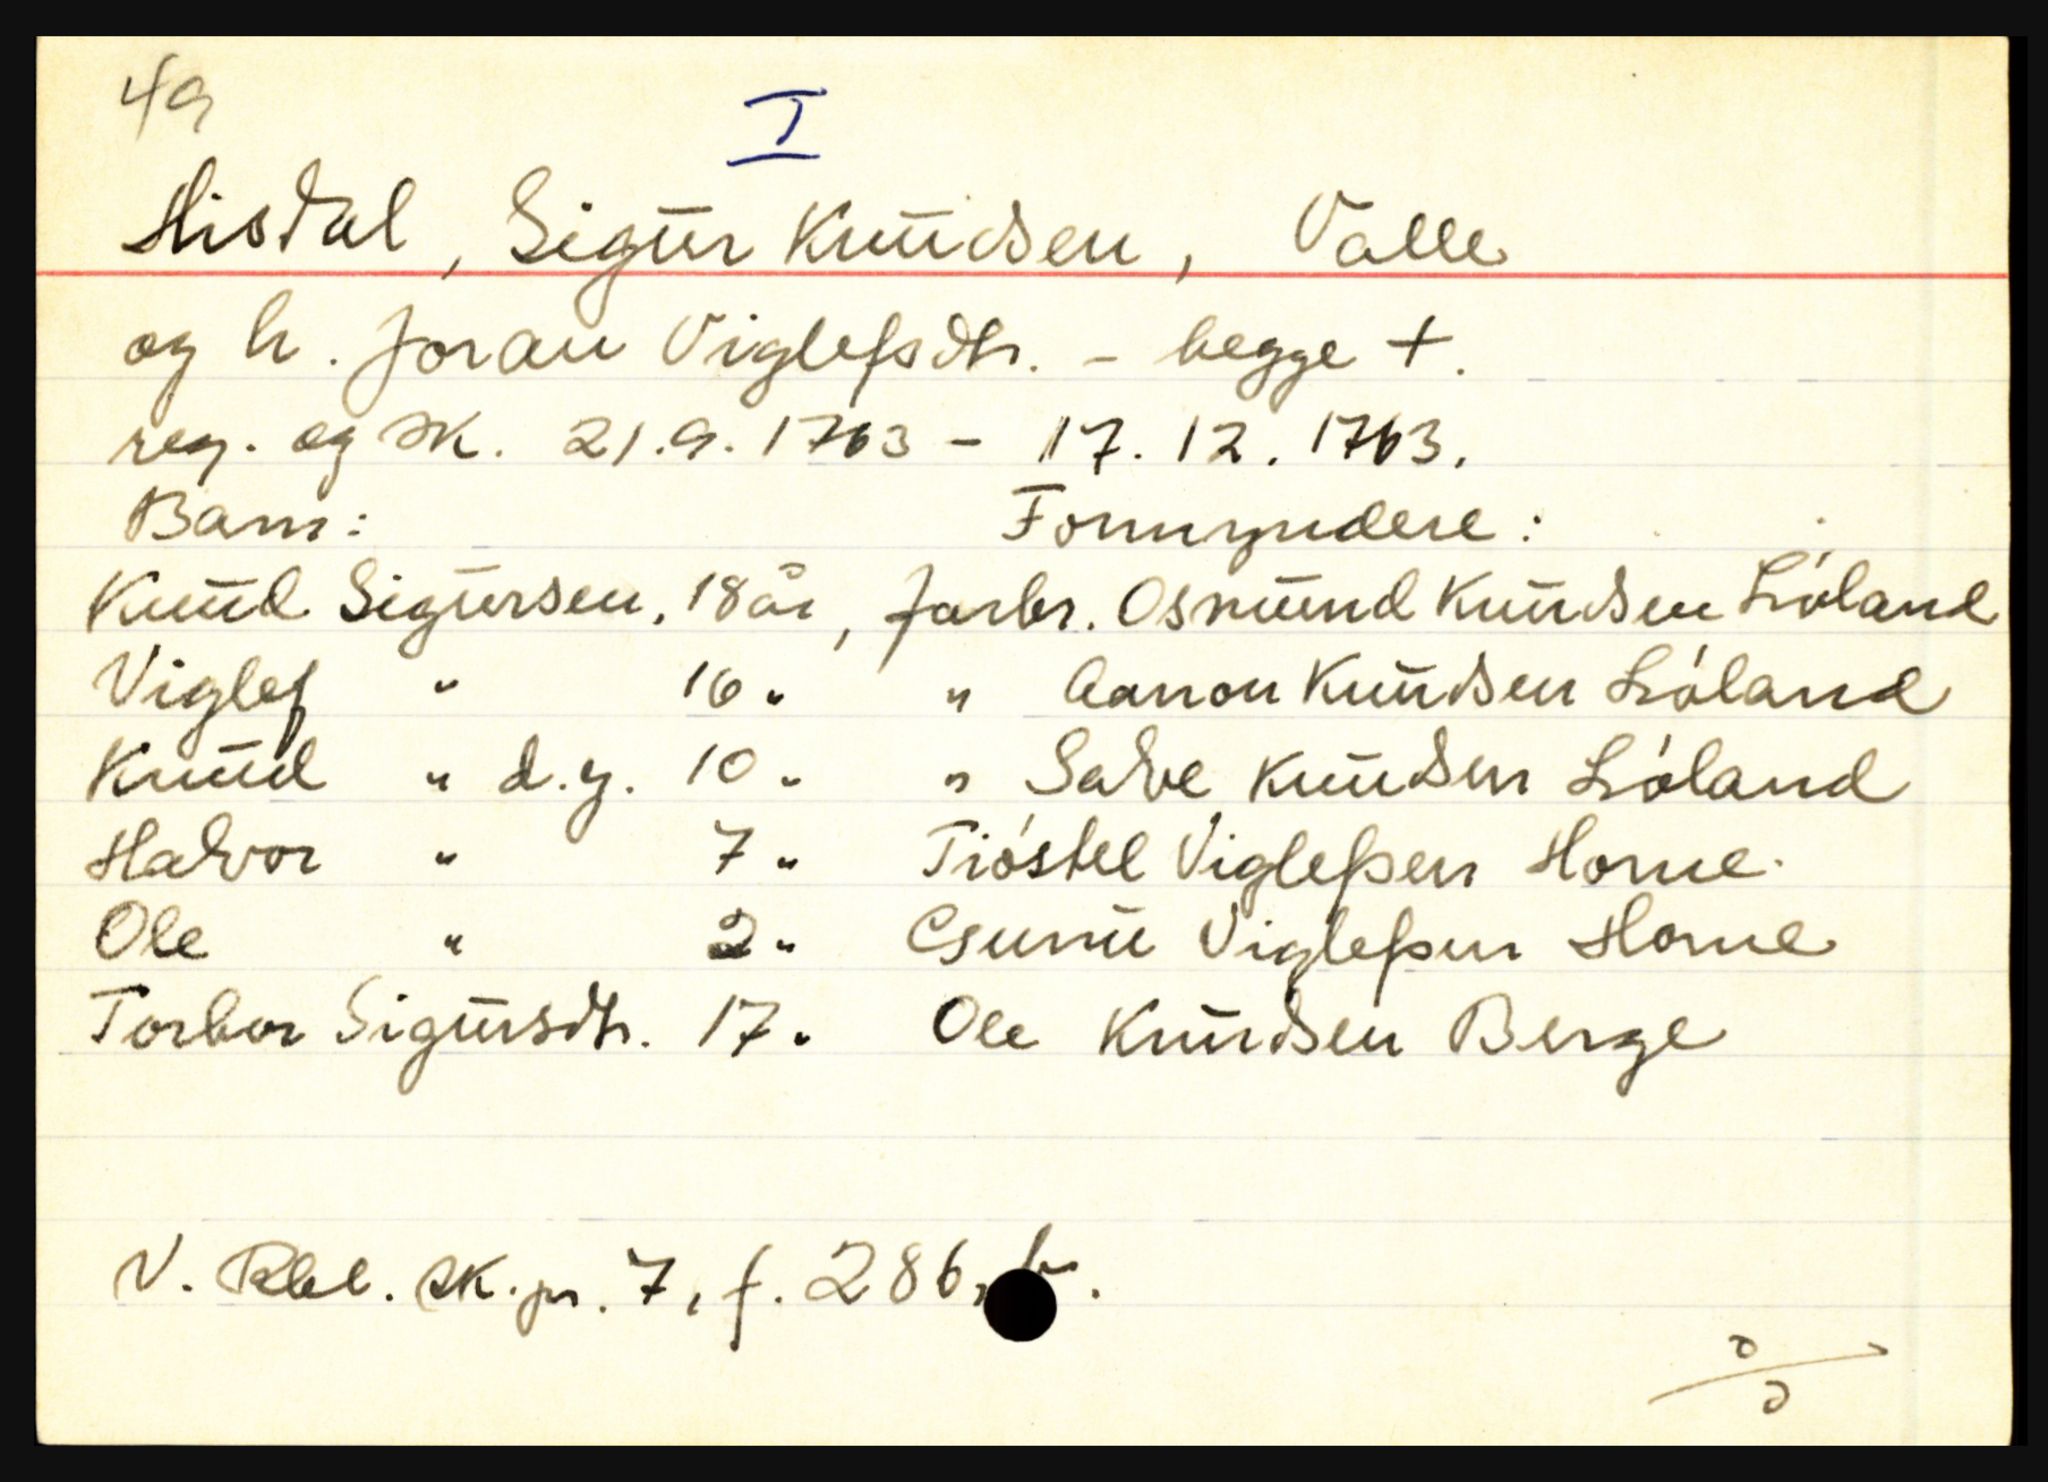 49
I
Hisdal, Sigur Knudsen, Valle
og h. Joran Viglefsdtr. - begge +.
reg. og sk. 21.9.1763 - 17.12.1763.
Barn: Formyndere:
Knud Sigursen, 18 år, farbr. Osmund Knudsen Lióland
Viglef " 16 " " Aanon Knudsen Lióland
Knud " d.y. 10 " " Salve Knudsen Lióland
Halvor " 7 " Tióstel Viglefsen Horne
Ole " 2 " Viglefsen Horne
Torbor Sigursdtr. 17 " Ole Knudsen Berge
V. Rbl. sk.pr. 7, f. 286, b.